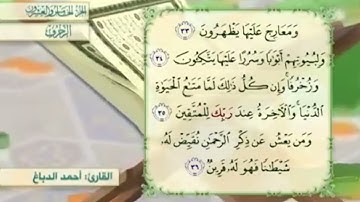 الجزء الخامس والعشرون
الزخرف
وَمَعَارِجَ عَلَيْهَا يَظْهَرُونَ ٣٣
وَلِبُيُوتِهِمْ أَبْوَٰبًا وَسُرُرًا عَلَيْهَا يَتَّكِـُٔونَ ٣٤
وَزُخْرُفًا ۚ وَإِن كُلُّ ذَٰلِكَ لَمَّا مَتَٰعُ ٱلْحَيَوٰةِ
ٱلدُّنْيَا ۚ وَٱلْءَاخِرَةُ عِندَ رَبِّكَ لِلْمُتَّقِينَ ٣٥
وَمَن يَعْشُ عَن ذِكْرِ ٱلرَّحْمَٰنِ نُقَيِّضْ لَهُۥ
شَيْطَٰنًا فَهُوَ لَهُۥ قَرِينٌ ٣٦
القارئ: أحمد الدباغ